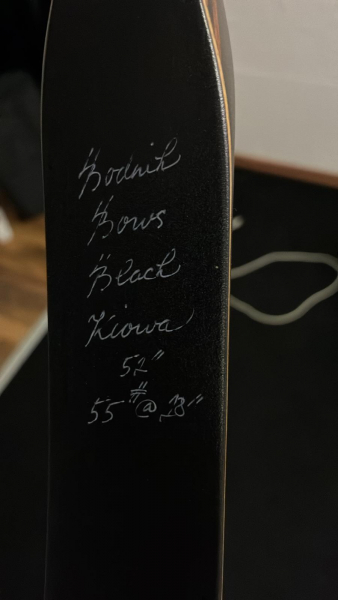 Bodnik
Bows
Black
Kiowa
52"
55# @ 28"